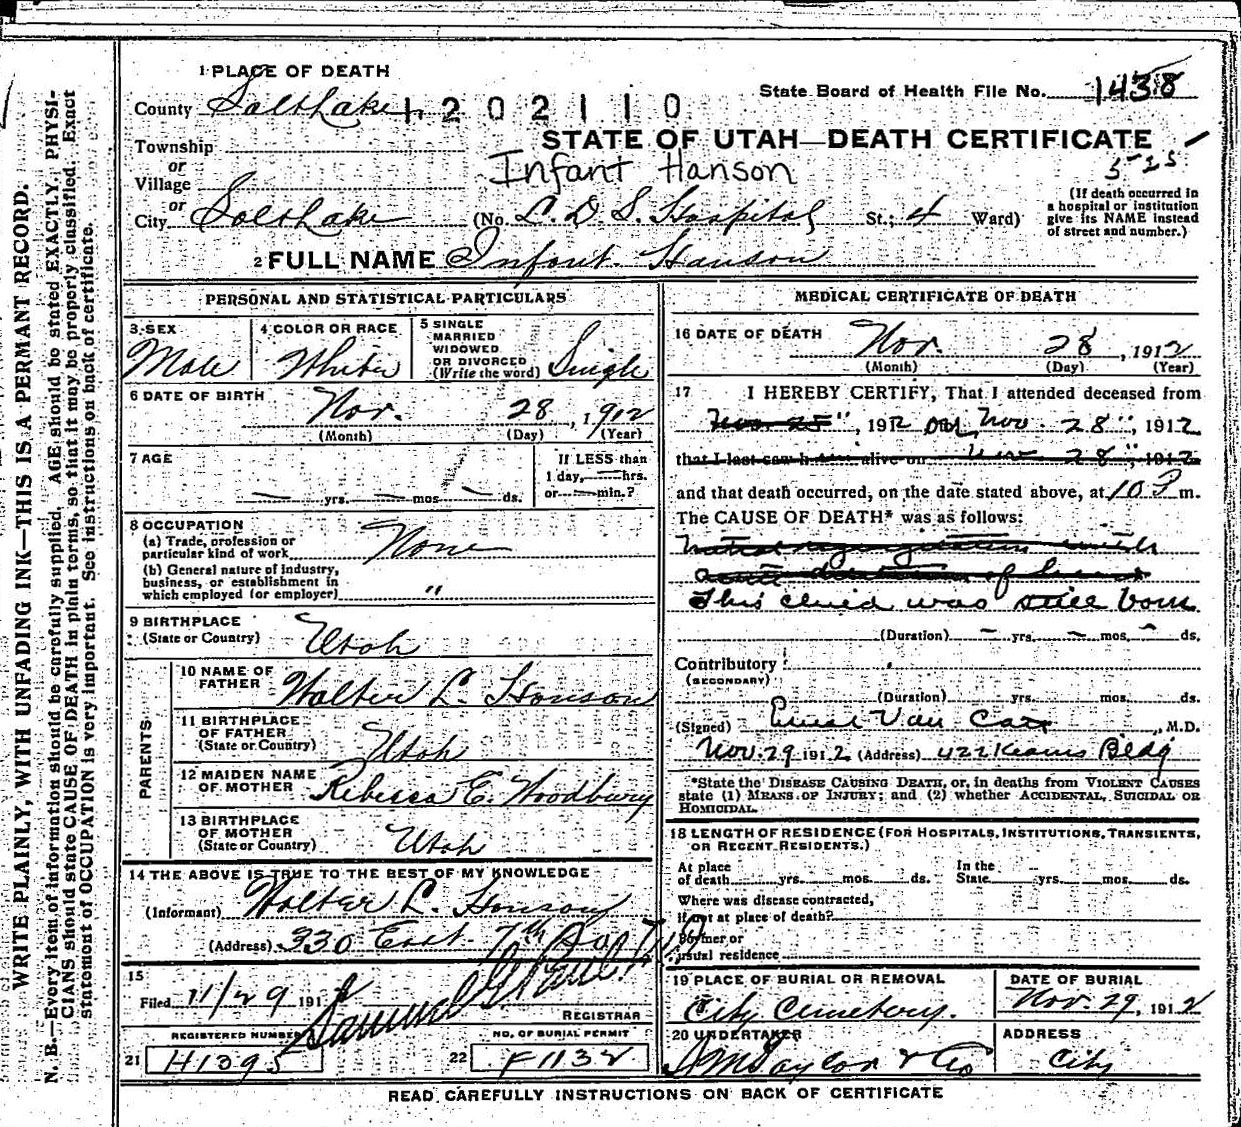 1 PLACE OF DEATH
State Board of Health File No. 1438
County Salt Lake 1202110
STATE OF UTAH—DEATH CERTIFICATE
Township
or
Infant Hanson
525
Village
or
City Salt Lake (No. L. D. S. Hospital St.; 4 Ward)
(If death occurred in
a hospital or institution
give its NAME instead
of street and number.)
2 FULL NAME Infant Hanson
PERSONAL AND STATISTICAL PARTICULARS
3 SEX Male
4 COLOR OR RACE White
5 SINGLE
MARRIED
WIDOWED
OR DIVORCED
(Write the word) Single
6 DATE OF BIRTH Nov. 28, 1912
(Month) (Day) (Year)
7 AGE
yrs. mos. ds.
If LESS than
1 day, hrs.
or min.?
8 OCCUPATION
(a) Trade, profession or
particular kind of work None
(b) General nature of Industry,
business, or establishment in
which employed (or employer) "
9 BIRTHPLACE
(State or Country) Utah
PARENTS
10 NAME OF
FATHER Walter L. Hanson
11 BIRTHPLACE
OF FATHER
(State or Country) Utah
12 MAIDEN NAME
OF MOTHER Rebecca E. Woodbury
13 BIRTHPLACE
OF MOTHER
(State or Country) Utah
14 THE ABOVE IS TRUE TO THE BEST OF MY KNOWLEDGE
(Informant) Walter L. Hanson
(Address) 330 East 7th So
15
Filed 11/29 191 2
Samuel G. Paul
REGISTRAR
REGISTERED NUMBER
21 H1395
NO. OF BURIAL PERMIT
22 F1132
MEDICAL CERTIFICATE OF DEATH
16 DATE OF DEATH Nov. 28, 1912
(Month) (Day) (Year)
17 I HEREBY CERTIFY, That I attended deceased from
Nov. 25", 1912 on Nov. 28", 1912
that I last saw h im alive on Nov. 28", 1912
and that death occurred, on the date stated above, at 10 P m.
The CAUSE OF DEATH* was as follows:
of heart
This child was still born
(Duration) yrs. mos. ds.
Contributory
(SECONDARY)
(Duration) yrs. mos. ds.
(Signed) Van Cott, M.D.
Nov. 29 1912 (Address) 422 Kearns Bldg
*State the DISEASE CAUSING DEATH, or, in deaths from VIOLENT CAUSES
state (1) MEANS OF INJURY; and (2) whether ACCIDENTAL, SUICIDAL OR
HOMICIDAL.
18 LENGTH OF RESIDENCE (FOR HOSPITALS, INSTITUTIONS, TRANSIENTS,
OR RECENT RESIDENTS.)
At place
of death yrs. mos. ds.
In the
State yrs. mos. ds.
Where was disease contracted,
if not at place of death?
Former or
usual residence
19 PLACE OF BURIAL OR REMOVAL
City Cemetery.
DATE OF BURIAL
Nov. 29, 1912
20 UNDERTAKER
S M Taylor & Co
ADDRESS
City
READ CAREFULLY INSTRUCTIONS ON BACK OF CERTIFICATE
WRITE PLAINLY, WITH UNFADING INK—THIS IS A PERMANT RECORD.
N. B.—Every item of information should be carefully supplied. AGE should be stated EXACTLY. PHYSI-
CIANS should state CAUSE OF DEATH in plain terms, so that it may be properly classified. Exact
statement of OCCUPATION is very important. See instructions on back of certificate.